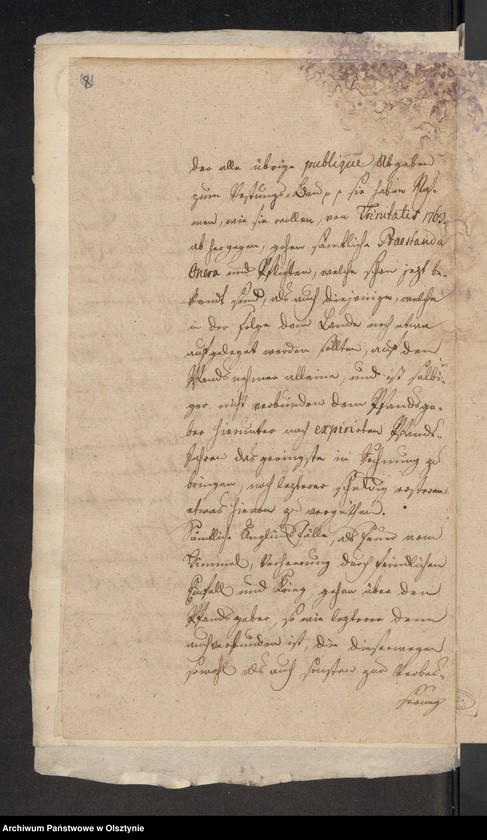 8
der alle übrige publique Abgaben
zum Vestungs-Bau, p. p. sie haben Nah-
men, wie sie wollen, von Trinitatis 1763.
ab hergegen, gehen sämtliche Praestanda
Onera und Pflichten, welche schon jezt be-
kandt sind, als auch diejenige, welche
in der Folge dem Lande noch etwa
aufgeleget werden sollten, auf den
Pfandsnehmer alleine, und ist selbi-
ger nicht verbunden dem Pfandsge-
ber hierunter nach expirirten Pfands-
Jahren das geringste in Rechnung zu
bringen, noch lezterer schuldig ersteren
etwas hievon zu vergüthen.
Sämtliche Unglücks Fälle, als Feuer vom
Himmel, Verheerung durch feindlichen
Einfall und Krieg, gehen über den
Pfandsgeber, so wie lezterer denn
auch verbunden ist, die dieserwegen
sowohl als auch sonsten zur Verbes-
serung
Archiwum Państwowe w Olsztynie